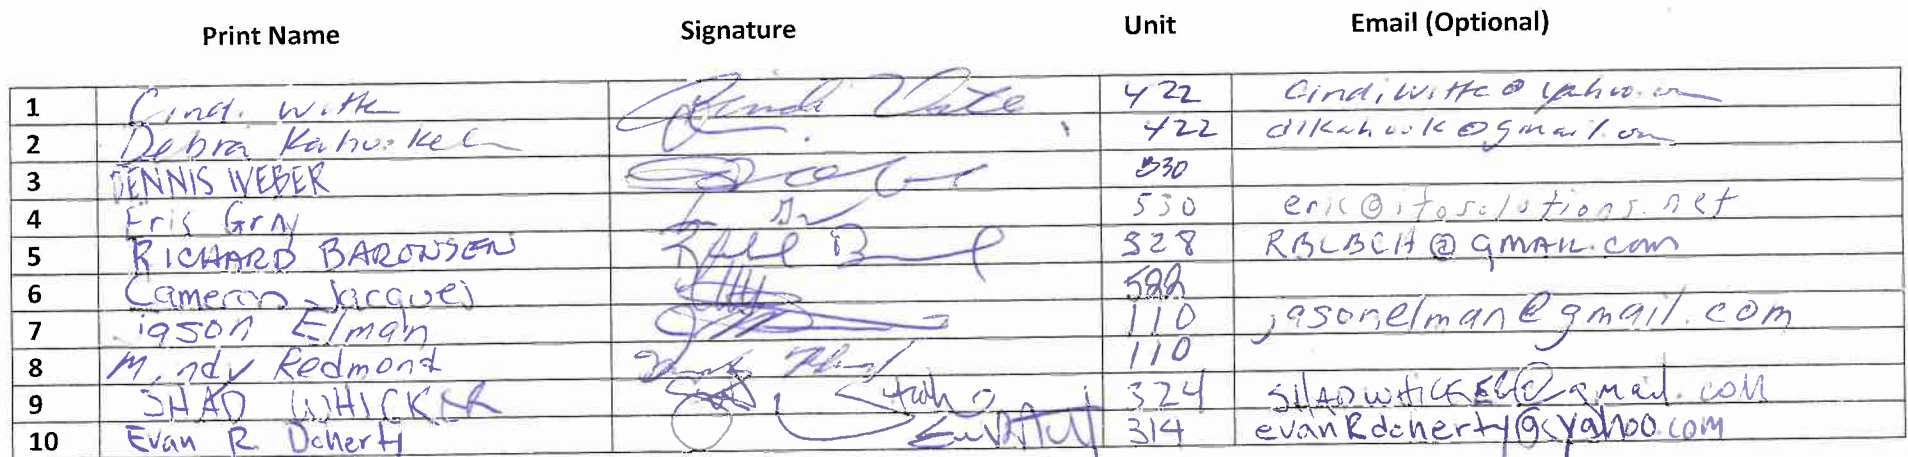 Print Name Signature Unit Email (Optional)
1 Cindi Witte 422 cindiwitte@yahoo.com
2 Debra 422 @gmail.com
3 DENNIS WEBER 530
4 Eric Gray 530 eric@itosolutions.net
5 RICHARD BARONSEN 328 RBLBCH@gmail.com
6 Cameron Jacques 522
7 jason Elman 110 jasonelman@gmail.com
8 Mindy Redmond 110
9 SHAD WHICKER 324 SHADWHICKER@gmail.com
10 Evan R Doherty 314 evanRdoherty@yahoo.com